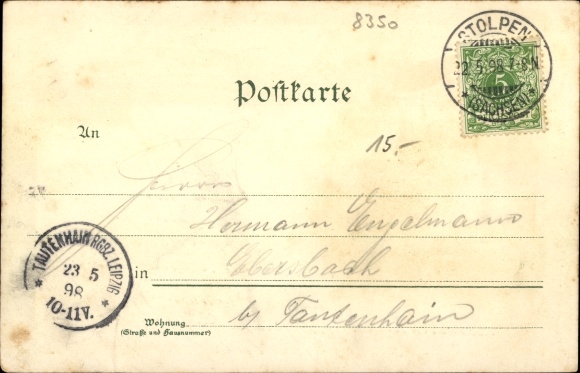 8350
STOLPEN
22.5.98.7-8N.
* (SACHSEN) *
5
Postkarte
An
15.-
Herrn
Hermann Engelmann
TAUTENHAIN RGBZ. LEIPZIG
23 5
98
10-11V.
in
Ebersbach
b/ Tautenhain
Wohnung
(Straße und Hausnummer)